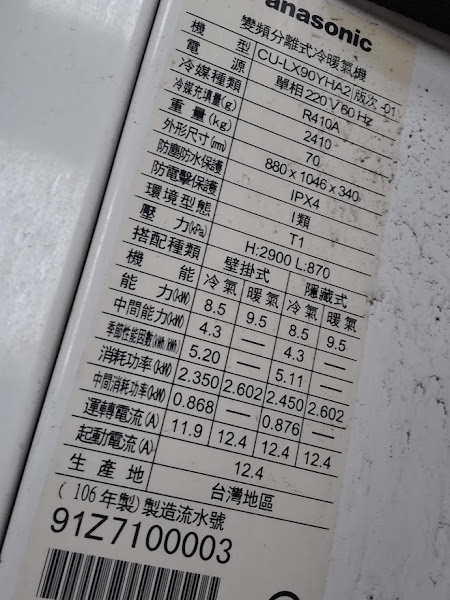 anasonic
變頻分離式冷暖氣機
機 型 CU-LX90YHA2 版次 -01
電 源 單相 220V 60Hz
冷媒種類 R410A
冷媒充填量(g) 2410
重量(kg) 70
外形尺寸(mm) 880×1046×340
防塵防水保護 IPX4
防電擊保護 I類
環境型態 T1
壓 力(kPa) H:2900 L:870
搭配種類 壁掛式 隱藏式
機 能 冷氣 暖氣 冷氣 暖氣
能 力(kW) 8.5 9.5 8.5 9.5
中間能力(kW) 4.3 — 4.3 —
季節性能因數(kWh/kWh) 5.20 — 5.11 —
消耗功率(kW) 2.350 2.602 2.450 2.602
中間消耗功率(kW) 0.868 — 0.876 —
運轉電流(A) 11.9 12.4 12.4 12.4
起動電流(A) 12.4
生 產 地 台灣地區
(106年製)製造流水號
91Z7100003